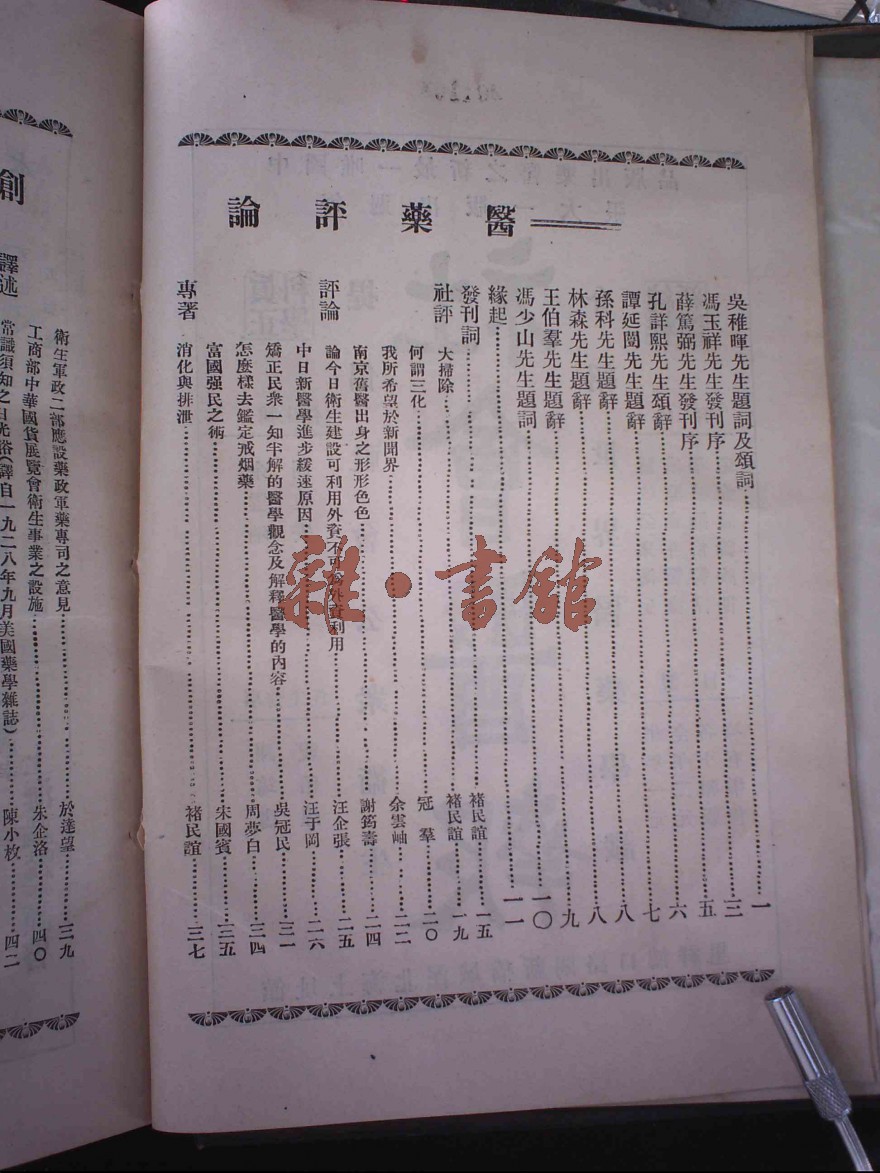 醫藥評論
吳稚暉先生題詞及頌詞……一
馮玉祥先生發刊序……三
薛篤弼先生發刊序……五
孔詳熙先生頌辭……六
譚延闓先生題辭……七
孫科先生題辭……八
林森先生題辭……八
王伯羣先生題辭……九
馮少山先生題詞……一〇
緣起……一一
發刊詞……褚民誼……一五
社評 大掃除……褚民誼……一九
何謂三化……冠羣……二〇
我所希望於新聞界……余雲岫……二二
南京舊醫出身之形形色色……謝筠壽……二四
評論 論今日衛生建設可利用外資不可為外資利用……汪企張……二五
中日新醫學進步緩速原因……汪于岡……二六
矯正民衆一知半解的醫學觀念及解釋醫學的內容……吳冠民……三一
怎麼樣去鑑定戒烟藥……周夢白……三四
富國强民之術……朱國賓……三五
專著 消化與排泄……褚民誼……三七
衛生軍政二部應設藥政軍藥專司之意見……於達望……三九
工商部中華國貨展覽會衛生事業之設施……朱企洛……四〇
譯述 常識須知之日光浴(譯自一九二八年九月美國藥學雜誌)……陳小枚……四二
創
雜·書館